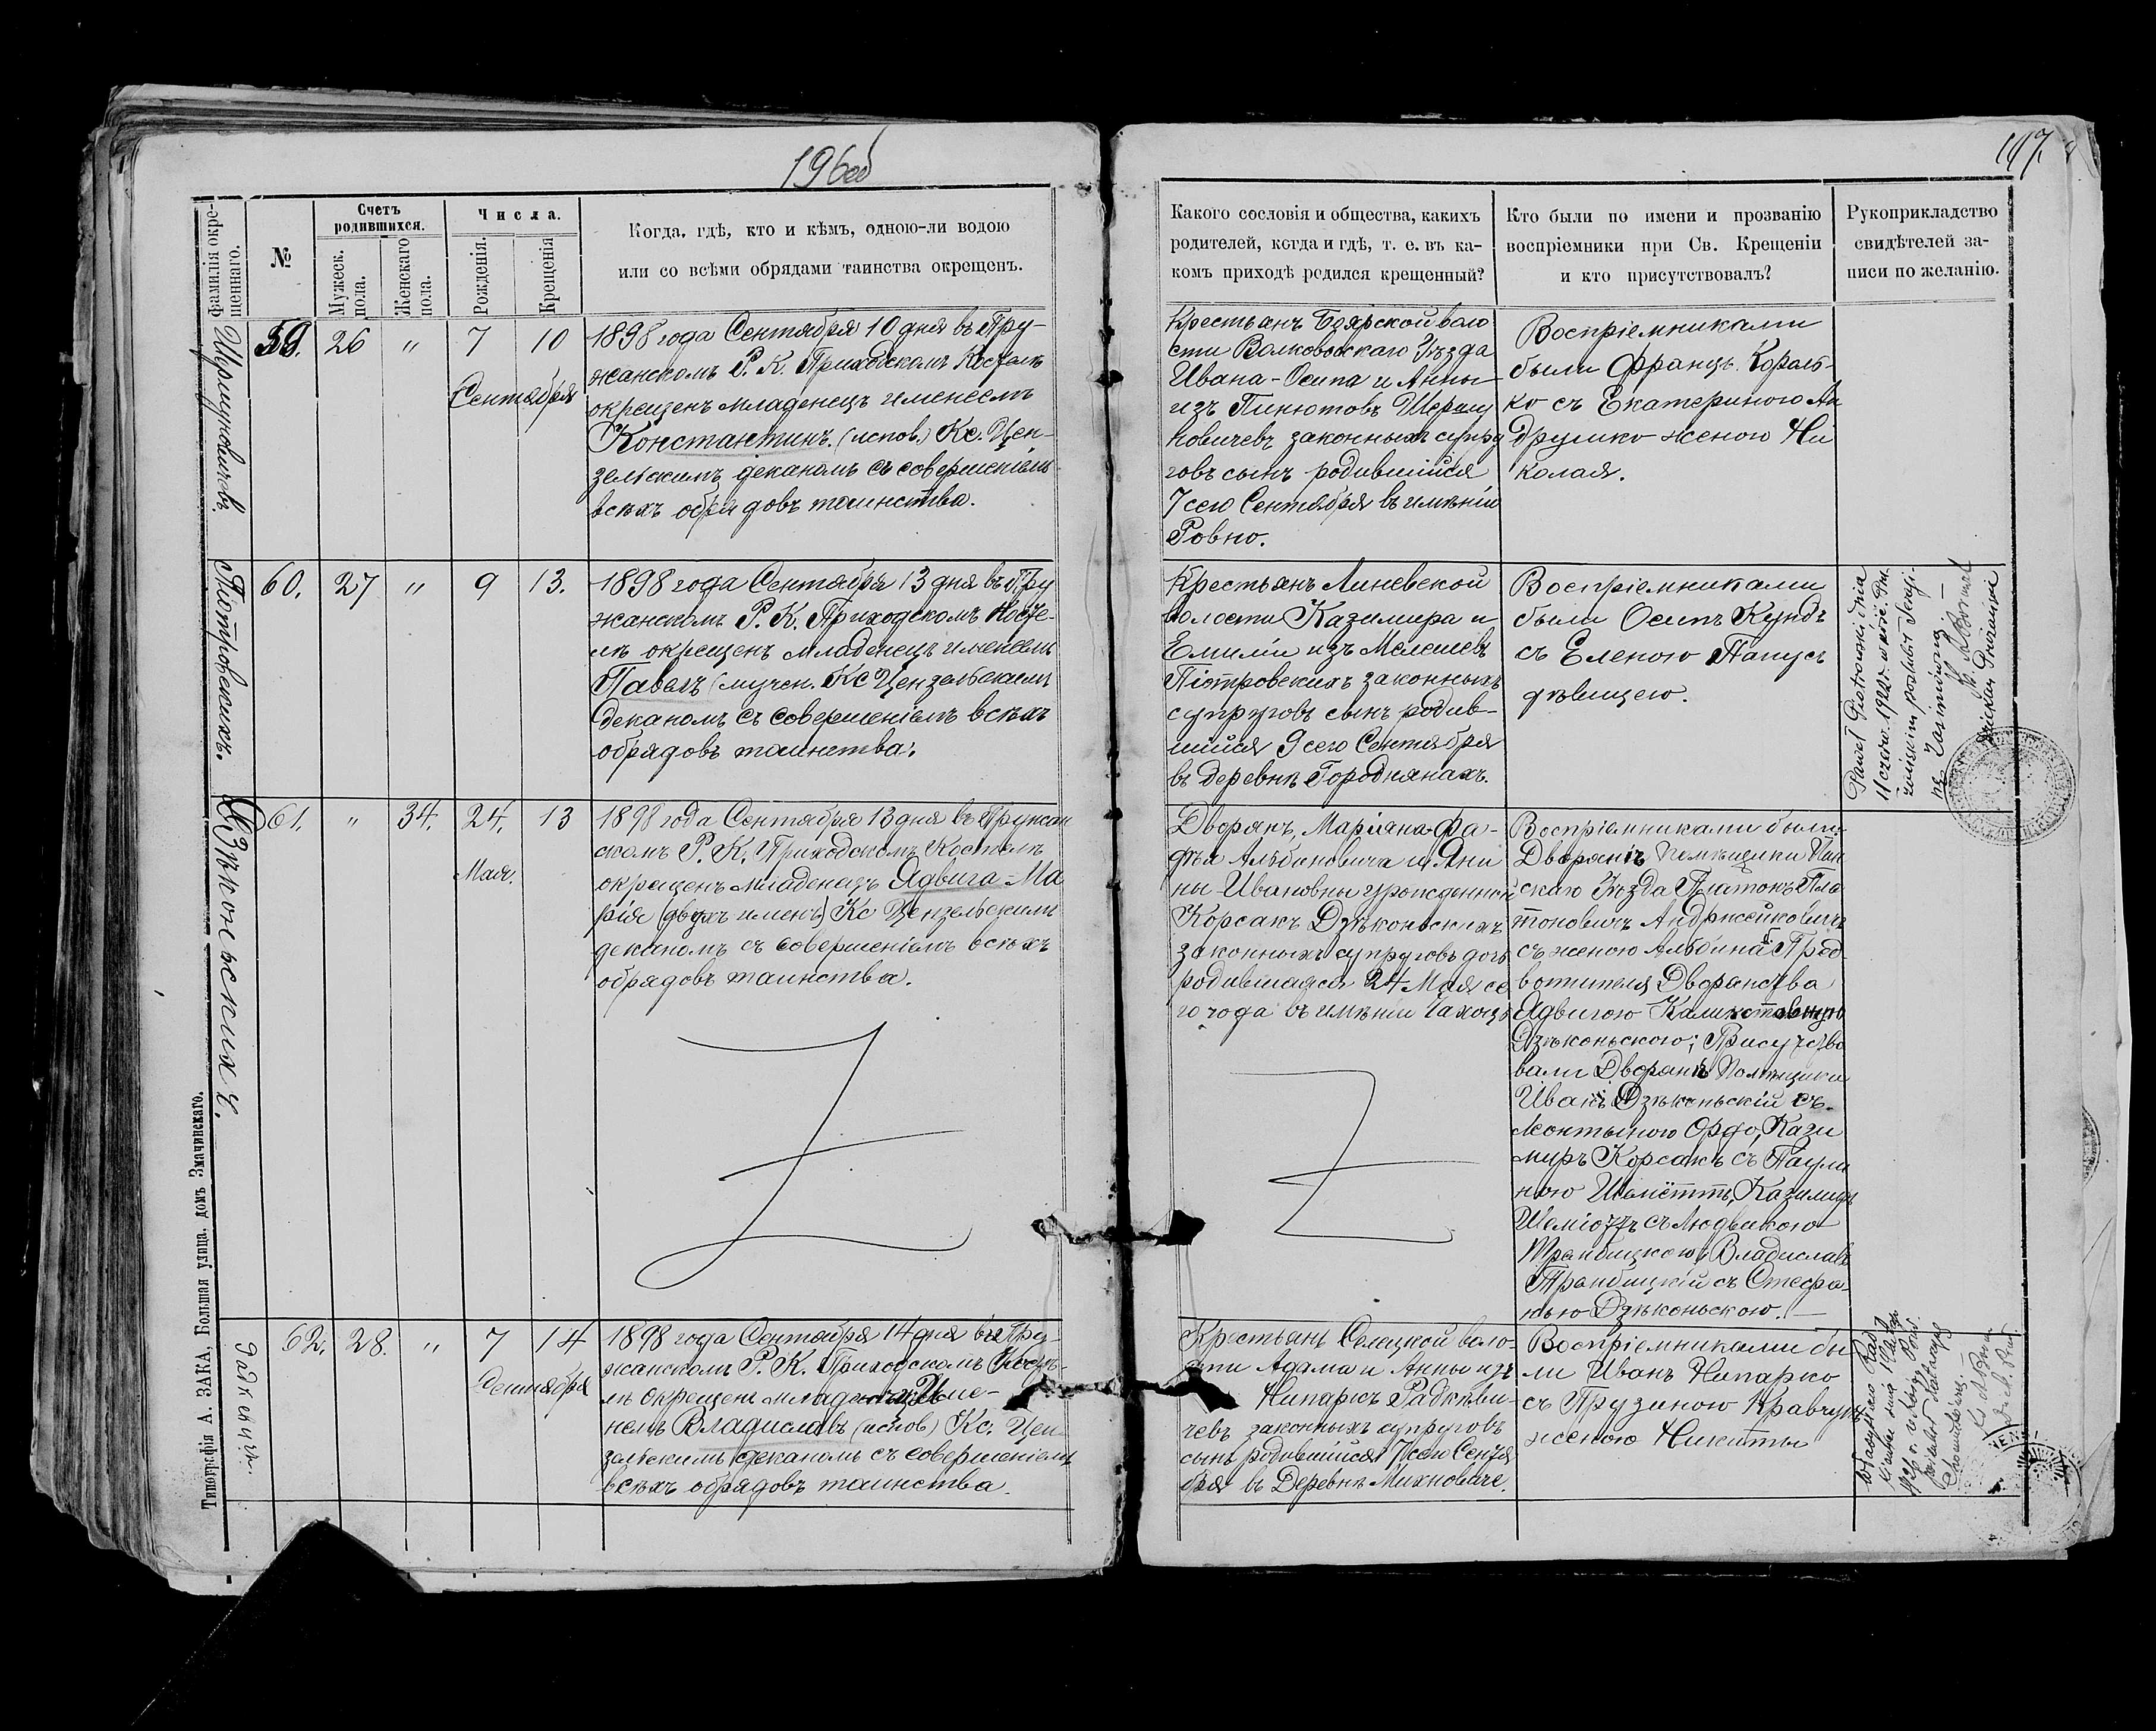 196об
197.
Фамилія окре-
щеннаго.
№
Счетъ
родившихся.
Мужеск.
пола.
Женскаго
пола.
Числа.
Рожденія.
Крещенія
Когда, гдѣ, кто и кѣмъ, одною-ли водою
или со всѣми обрядами таинства окрещенъ.
Какого сословія и общества, какихъ
родителей, когда и гдѣ, т. е. въ ка-
комъ приходѣ родился крещенный?
Кто были по имени и прозванію
воспріемники при Св. Крещеніи
и кто присутствовалъ?
Рукоприкладство
свидѣтелей за-
писи по желанію.
59. 26 " 7 10
Сентября
1898 года Сентября 10 дня въ Пру-
жанскомъ Р. К. Приходскомъ Костелѣ
окрещенъ младенецъ именемъ
Константинъ. (испов.) Кс. Цен-
зельскимъ деканомъ съ совершеніемъ
всѣхъ обрядовъ таинства.
Крестьянъ Боярской воло
сти Волковыскаго Уѣзда
Ивана-Осипа и Анны
изъ Пинютовъ
новичевъ законныхъ супру
говъ сынъ родившійся
7 сего Сентября въ имѣніи
Ровно.
Воспріемниками
были Францъ
съ Екатериною Ан
друшко женою Ни
колая.
Піотровскихъ.
60. 27 " 9 13.
1898 года Сентября 13 дня въ Пру
жанскомъ Р. К. Приходскомъ Косте-
лѣ окрещенъ младенецъ именемъ
Павелъ (мучен. Кс Цензельскимъ
деканомъ съ совершеніемъ всѣхъ
обрядовъ таинства.
Крестьянъ Линевской
волости Казимира и
Емиліи изъ Мелешевъ
Піотровскихъ законныхъ
супруговъ сынъ родив-
шійся 9 сего Сентября
въ деревнѣ Городнянахъ.
Воспріемниками
были Осипъ Кундъ
съ Еленою Папусь
дѣвицею.
Paweł Piotrowski dnia
11 czerw. 192 r. w kośc.
zawarł
Дзѣконьскихъ.
61. " 34. 24. 13
Мая.
1898 года Сентября 13 дня въ Пружан
скомъ Р. К. Приходскомъ Костелѣ
окрещенъ младенецъ Ядвига-Ма
рія (двухъ именъ) Кс Цензельскимъ
деканомъ съ совершеніемъ всѣхъ
обрядовъ таинства.
Дворянъ, Маріяна-Фа-
Альбиновича и Яни
ны-Ивановны урожденной
Корсакъ Дзѣконьскихъ
законныхъ супруговъ дочь
родившаяся 24 Мая се
го года въ имѣніи
Воспріемниками были:
Дворяне Помѣщики Пин
скаго Уѣзда Платонъ Пла
тоновичъ Андржейковичъ
съ женою Альбина Пред
водителя Дворянства
Ядвигою Каликстовною
Дзѣконьскою; Присутство
вали Дворяне Помѣщики
Иванъ Дзѣконьскій съ
Орда, Кази
миръ Корсакъ съ Паули
ною Шемётть, Казимиръ
Шеміоттъ съ Людвикою
Трембицкою, Владиславъ
Трембицкій съ Стефа
ніею Дзѣконьскою.
Радкевичъ.
62. 28. " 7 14
Сентября
1898 года Сентября 14 дня въ Пру-
жанскомъ Р. К. Приходскомъ Косте-
лѣ окрещенъ младенецъ Име-
немъ Владиславъ (испов) Кс. Цен-
зельскимъ деканомъ съ совершеніемъ
всѣхъ обрядовъ таинства.
Крестьянъ Селецкой воло-
сти Адама и Анны изъ
Нипаркъ Радкеви-
чевъ законныхъ супруговъ
сынъ родившійся 7 сего Сентя
бря въ Деревнѣ Михновиче.
Воспріемниками бы
ли Иванъ Нипарко
съ Прузиною Кравчукъ
женою Никиты
Типографія А. ЗАКА, Большая улица, домъ Значинскаго.